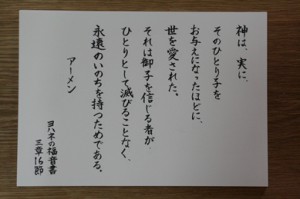 神は、実に、
そのひとり子を
お与えになったほどに、
世を愛された。
それは御子を信じる者が、
ひとりとして滅びることなく、
永遠のいのちを持つためである。
アーメン
ヨハネの福音書
三章16節